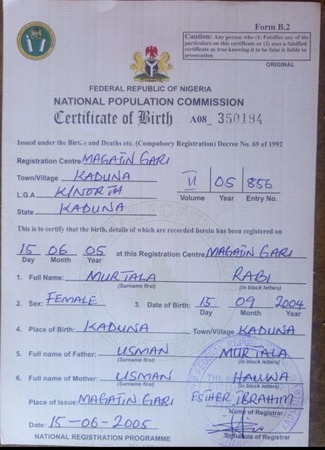 Form B.2
Caution: Any person who (1) Falsifies any of the
particulars on this certificate or (2) uses a falsified
certificate as true knowing it to be false is liable to
prosecution
ORIGINAL
FEDERAL REPUBLIC OF NIGERIA
NATIONAL POPULATION COMMISSION
Certificate of Birth A08_ 350194
Issued under the Births and Deaths etc. (Compulsory Registration) Decree No. 69 of 1992
Registration Centre MAGAJIN GARI
Town/Village KADUNA
L.G.A K/NORTH
State KADUNA
VI 05 856
Volume Year Entry No.
This is to certify that the birth, details of which are recorded herein has been registered on
15 06 05 at this Registration Centre MAGAJIN GARI
Day Month Year
1. Full Name: MURTALA RABI
(Surname first) (in block letters)
2. Sex: FEMALE 3. Date of Birth: 15 09 2004
Day Month Year
4. Place of Birth: KADUNA Town/Village KADUNA
5. Full name of Father: USMAN MURTALA
(Surname first) (in block letters)
6. Full name of Mother: USMAN HAUWA
(Surname first) (in block letters)
Place of Issue: MAGAJIN GARI ESTHER IBRAHIM
Name of Registrar
Date: 15-06-2005
Signature of Registrar
NATIONAL REGISTRATION PROGRAMME